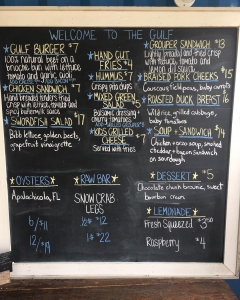 WELCOME TO THE GULF
GULF BURGER $7
100% natural beef on a
brioche bun with lettuce
tomato and garlic aioli
CHICKEN SANDWICH $7
Hand breaded tenders fried
crisp with lettuce, tomato and
spicy buttermilk sauce
SWORDFISH SALAD $
Bibb lettuce, golden beets,
grapefruit vinaigrette
HAND CUT
FRIES $4
HUMMUS $7
Crispy pita chips
MIXED GREEN
SALAD $5
dressing
cherry tomatoes
KIDS GRILLED $
CHEESE
Served with fries
GROUPER SANDWICH $13
Lightly breaded and fried crisp
with lettuce, tomato and
lemon dill sauce
BRAISED PORK CHEEKS $15
Couscous, field peas, baby carrots
ROASTED DUCK BREAST $16
Wild rice, grilled cabbage,
baby tomatoes
SOUP + SANDWICH $14
Chicken + orzo soup, smoked
cheddar + bacon sandwich
on sourdough
OYSTERS
Apalachicola, FL
6/$11
12/$19
RAW BAR
SNOW CRAB
LEGS
½# $12
1# $22
DESSERT $5
Chocolate chunk brownie, sweet
bourbon cream
LEMONADE
Fresh Squeezed $3.50
Raspberry $4